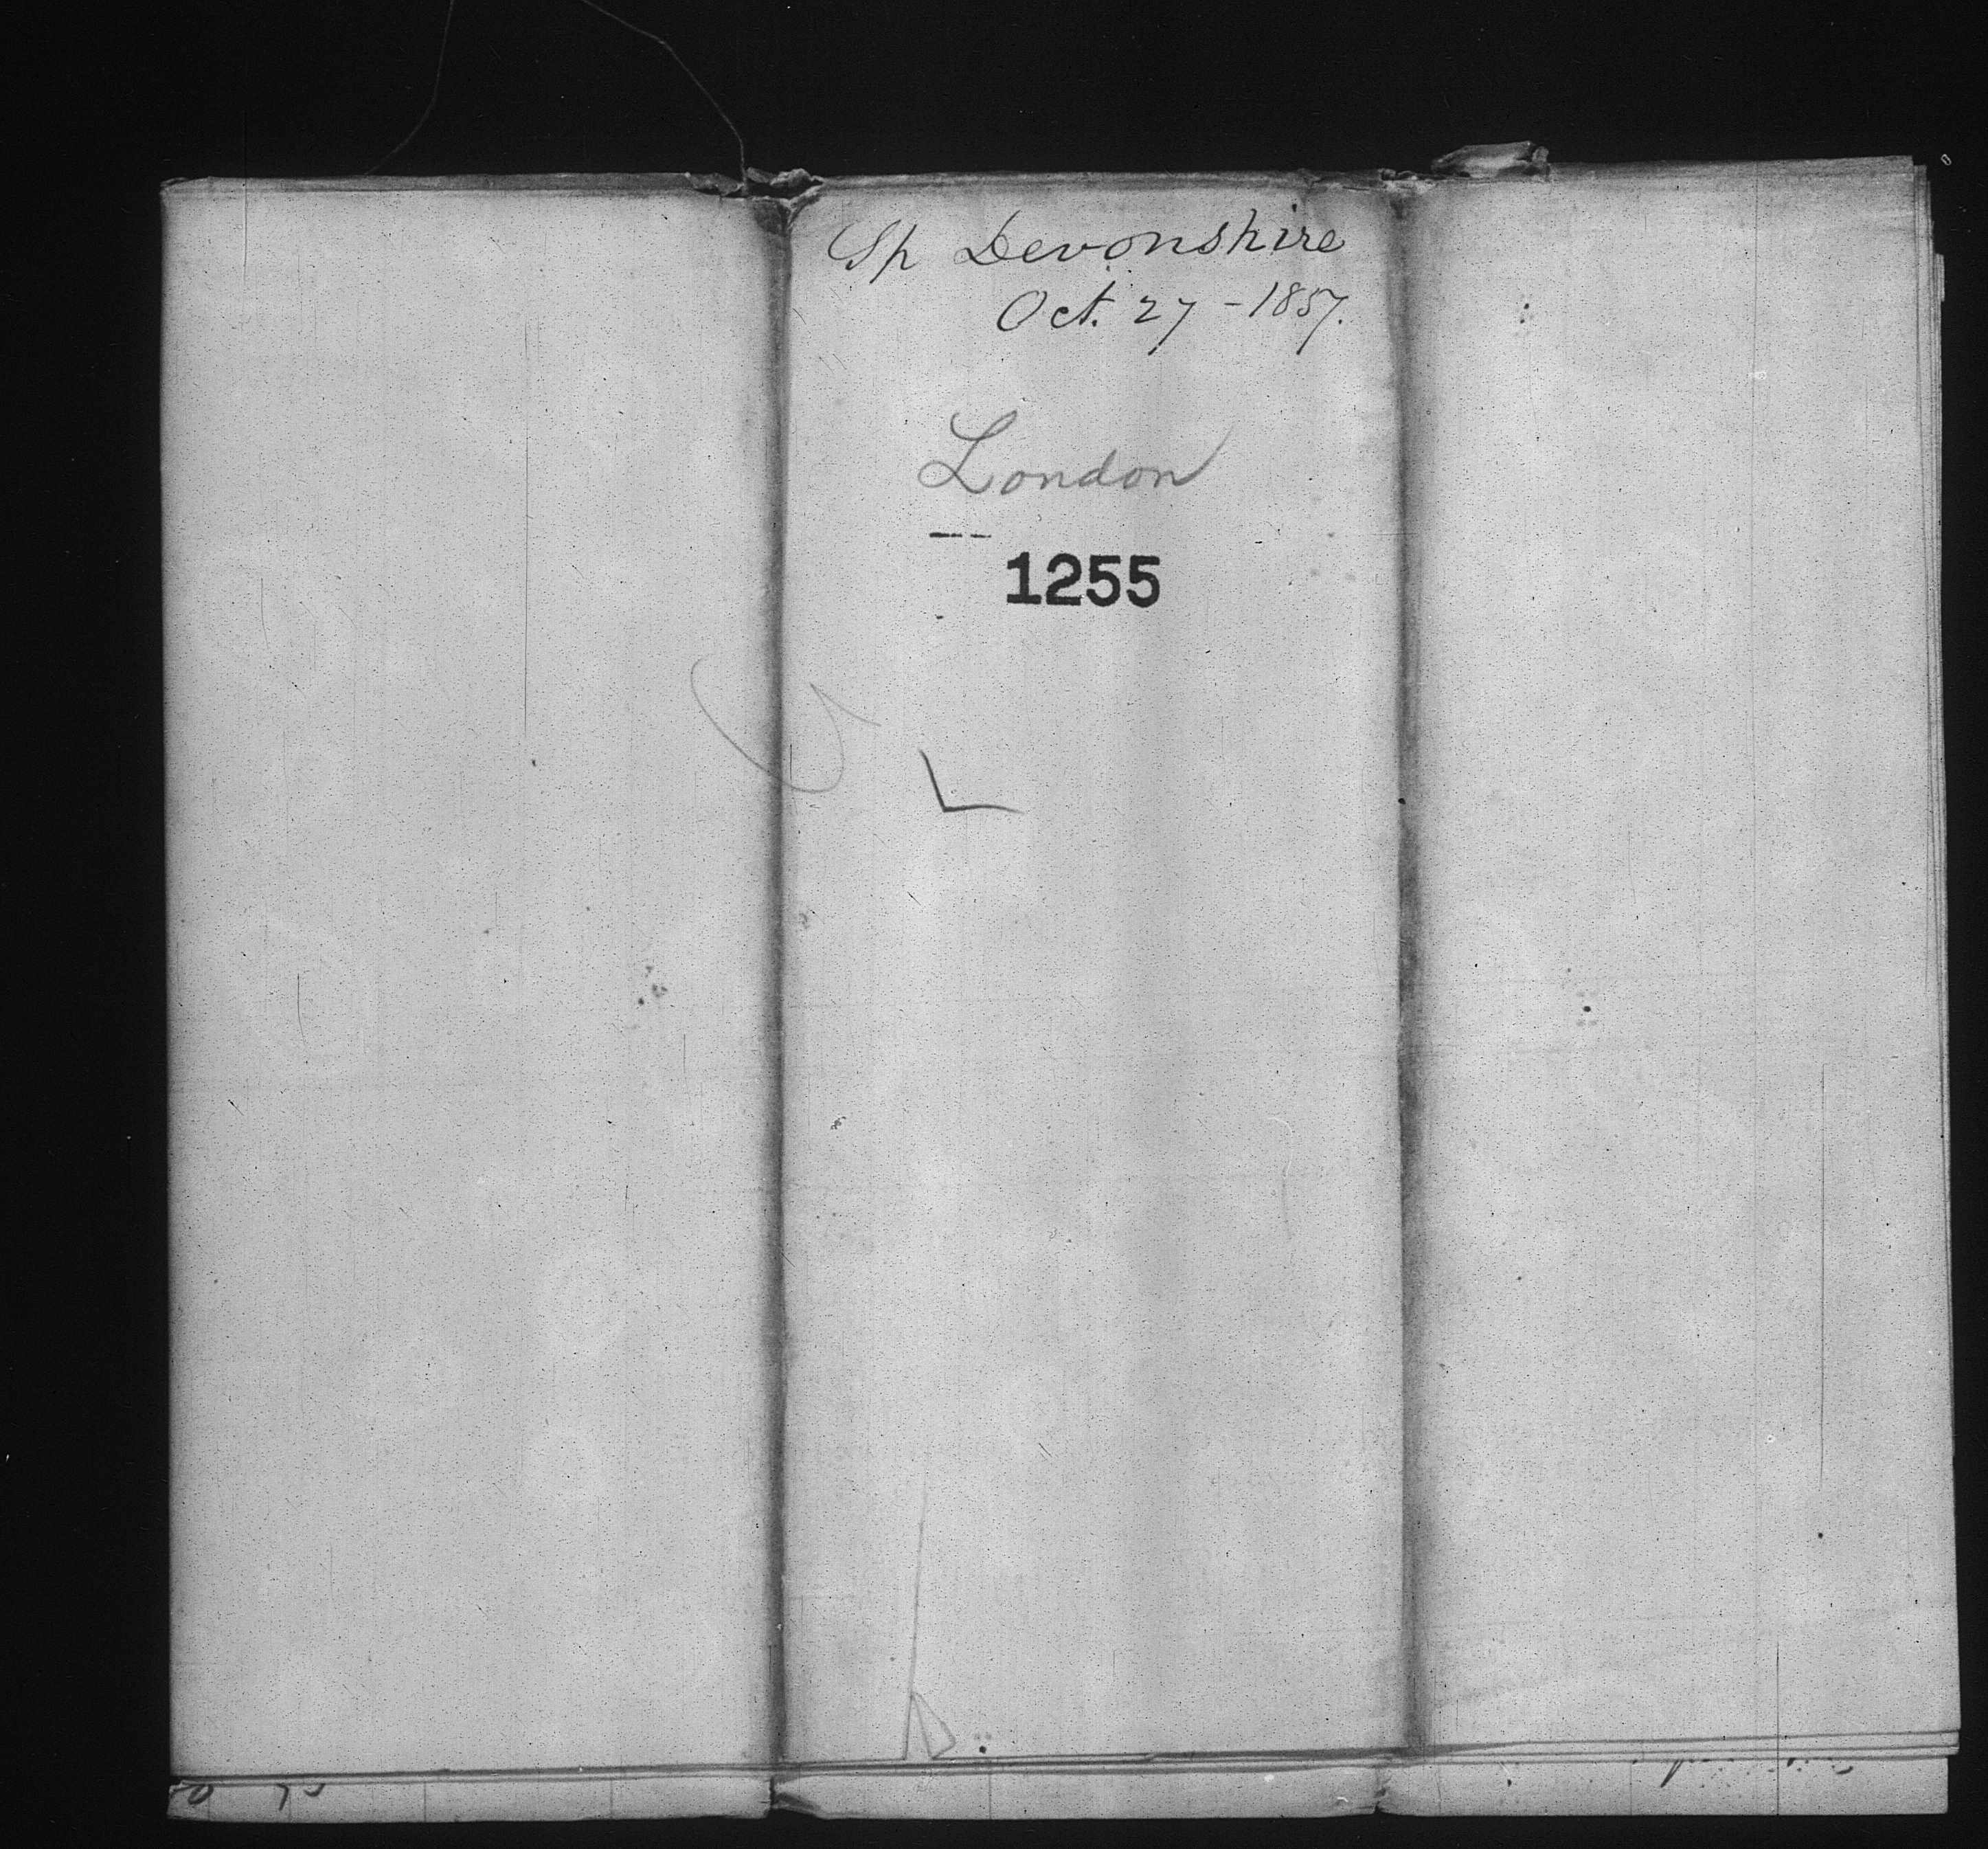 Sp Devonshire
Oct. 27 - 1857.
London
1255